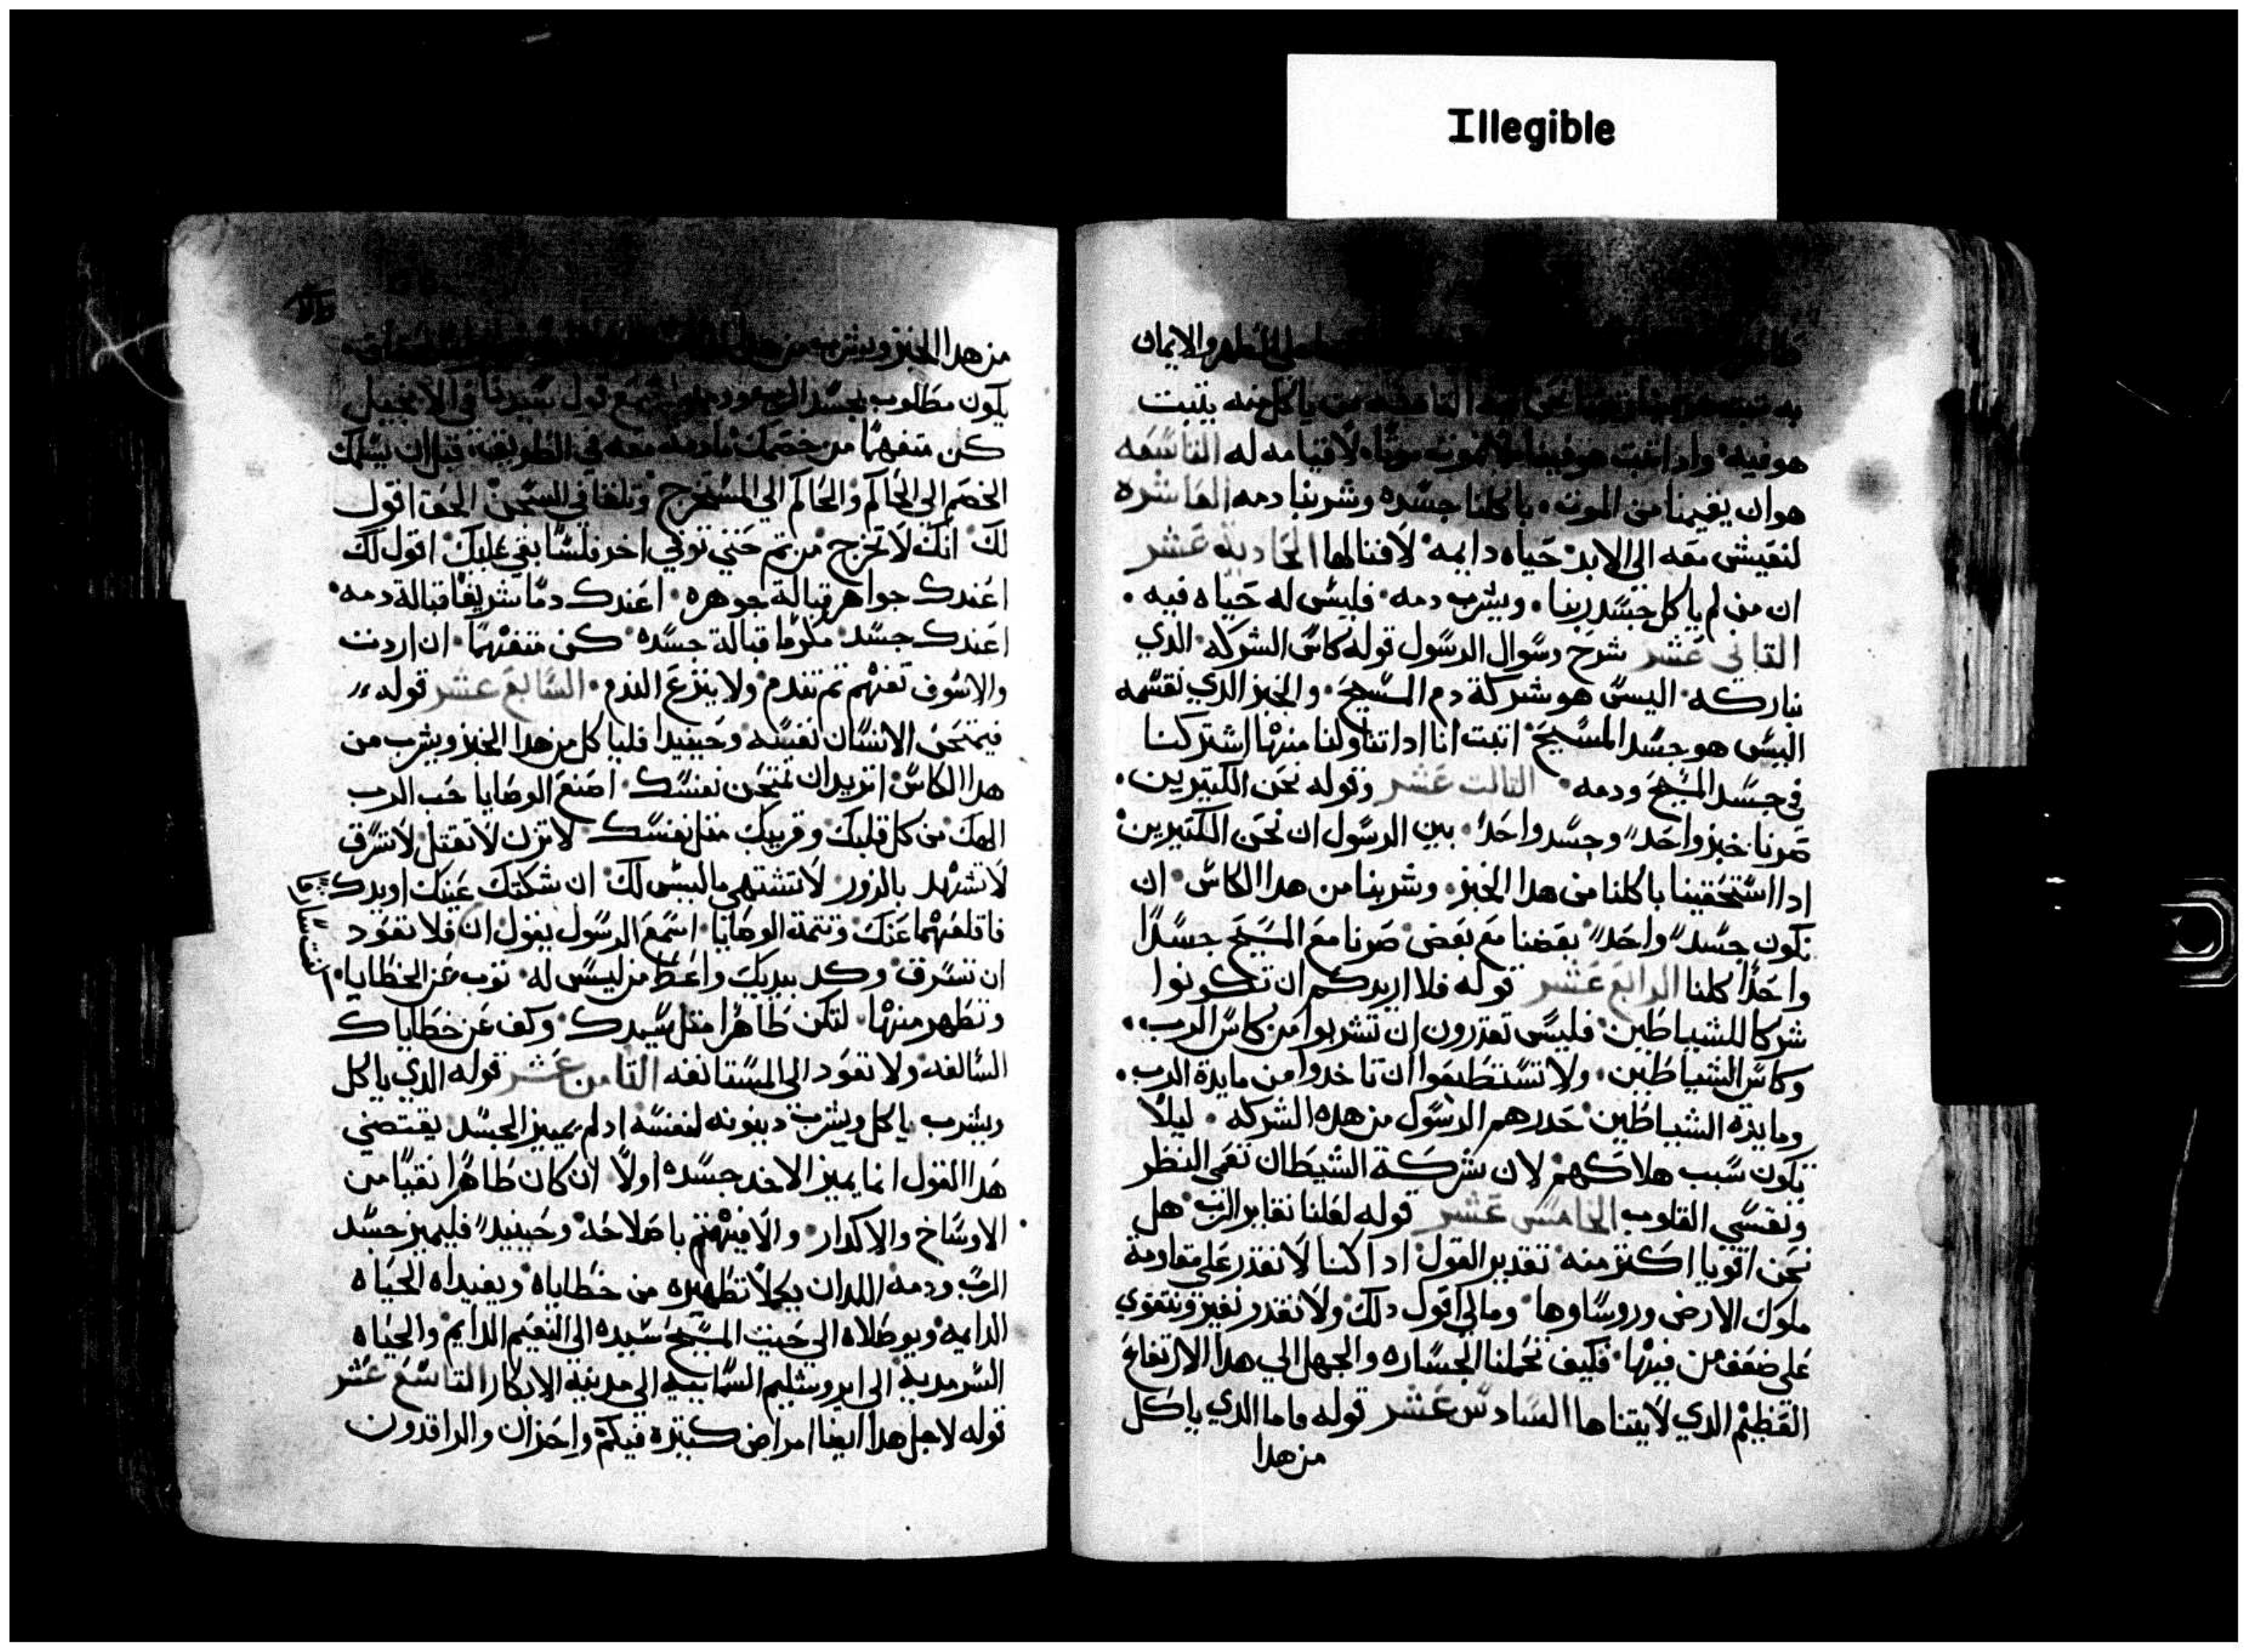 Illegible
والايمان
ياكل منه يثبت
هو فيه واذا ثبت هو فينا لا نموت موتًا لا قيامه له التاسعه
هو ان يقيمنا من الموت باكلنا جسده وشربنا دمه العاشره
لنعيش معه الى الابد حياه دايمه لا فنا لها الحاديه عشر
ان من لم ياكل جسد ربنا ويشرب دمه فليس له حياه فيه
التاني عشر شرح رسوال الرسول قوله كاس الشركه الدي
نباركه اليس هو شركة دم المسيح والخبز الدي نقسمه
اليس هو جسد المسيح اتبت انا ادا تناولنا منها اشتركنا
في جسد المسيح ودمه التالت عشر وقوله نحن الكتيرين
صرنا خبز واحد وجسد واحد بين الرسول ان نحن الكتيرين
ادا استحقينا باكلنا من هدا الخبز وشربنا من هدا الكاس ان
نكون جسد واحد بعضنا مع بعض صرنا مع المسيح جسدًا
واحدًا كلنا الرابع عشر قوله فلا اريدكم ان تكونوا
شركا للشياطين فليس تقدرون ان تشربوا من كاس الرب
وكاس الشياطين ولا تستطيعوا ان تاخدوا من مايدة الرب
ومايدة الشياطين حدرهم الرسول من هده الشركه ليلًا
تكون سبب هلاكهم لان شركة الشيطان تعمي النظر
وتقسي القلوب الخامس عشر قوله لعلنا نغاير الرب هل
نحن اقويا اكتر منه تقدير القول ادا كنا لا نقدر على مقاومة
ملوك الارض وروساوها ومالي اقول دلك ولا نقدر نفيز ونتقوي
علي ضعف من فيها فكيف تحملنا الجساره والجهل الي هدا الارتفاع
العظيم الدي لا يتناها السادس عشر قوله فاما الدي ياكل
من هدا
من هدا الخبز ويشرب من
يكون مطلوب بجسد الرب ودمه اسمع قول سيدنا في الانجيل
كن متفهمًا من خصمك مادمت معه في الطريق قبل ان يسلمك
الخصم الي الحاكم والحاكم الي المستخرج وتلقا في السجن الحق اقول
لك انك لا تخرج من تم حتي توفي اخر فلسًا بقي عليك اقول لك
اعندك جواهر قبالة جوهره اعندك دمًا شريفًا قبالة دمه
اعندك جسد مكرمًا قبالة جسده كن متفهمًا ان اردت
والا سوف تفهم تم تندم ولا ينزع الندم السابع عشر قوله
فيمتحن الانسان نفسه وحينيد فلياكل من هدا الخبز ويشرب من
هدا الكاس اتريد ان تمتحن نفسك اصنع الوصايا حب الرب
الهك من كل قلبك وقريبك متل نفسك لا تزن لا تقتل لا تسرق
لا تشهد بالزور لا تشتهي ما ليس لك ان شككتك عينك او يدك
فاقلعهما عنك وتتمة الوصايا اسمع الرسول يقول ان فلا تعود
ان تسرق وكد بيديك واعط من ليس له توب عن الخطايا
وتطهر منها لتكن طاهرًا متل سيدك وكف عن خطاياك
السالفه ولا تعود الى المستانفه التامن عشر قوله الدي ياكل
ويشرب ياكل ويشرب دينونه لنفسه ادلم يميز الجسد يقتضي
هدا القول انما يميز الاخد جسده اولًا ان كان طاهرًا نقيًا من
الاوساخ والاكدار والا فيهتم باصلاحه وحينيد فليميز جسد
الرب ودمه اللدان يكملا تطهيره من خطاياه ويفيداه الحياه
الدايمه ويوصلاه الى حيت المسيح سيده الى النعيم الدايم والحياه
السرمدية الى ايروشليم السماييه الى مدينة الابكار التاسع عشر
قوله لاجل هدا ايضا امراض كتيرة فيكم واحزان والراقدون